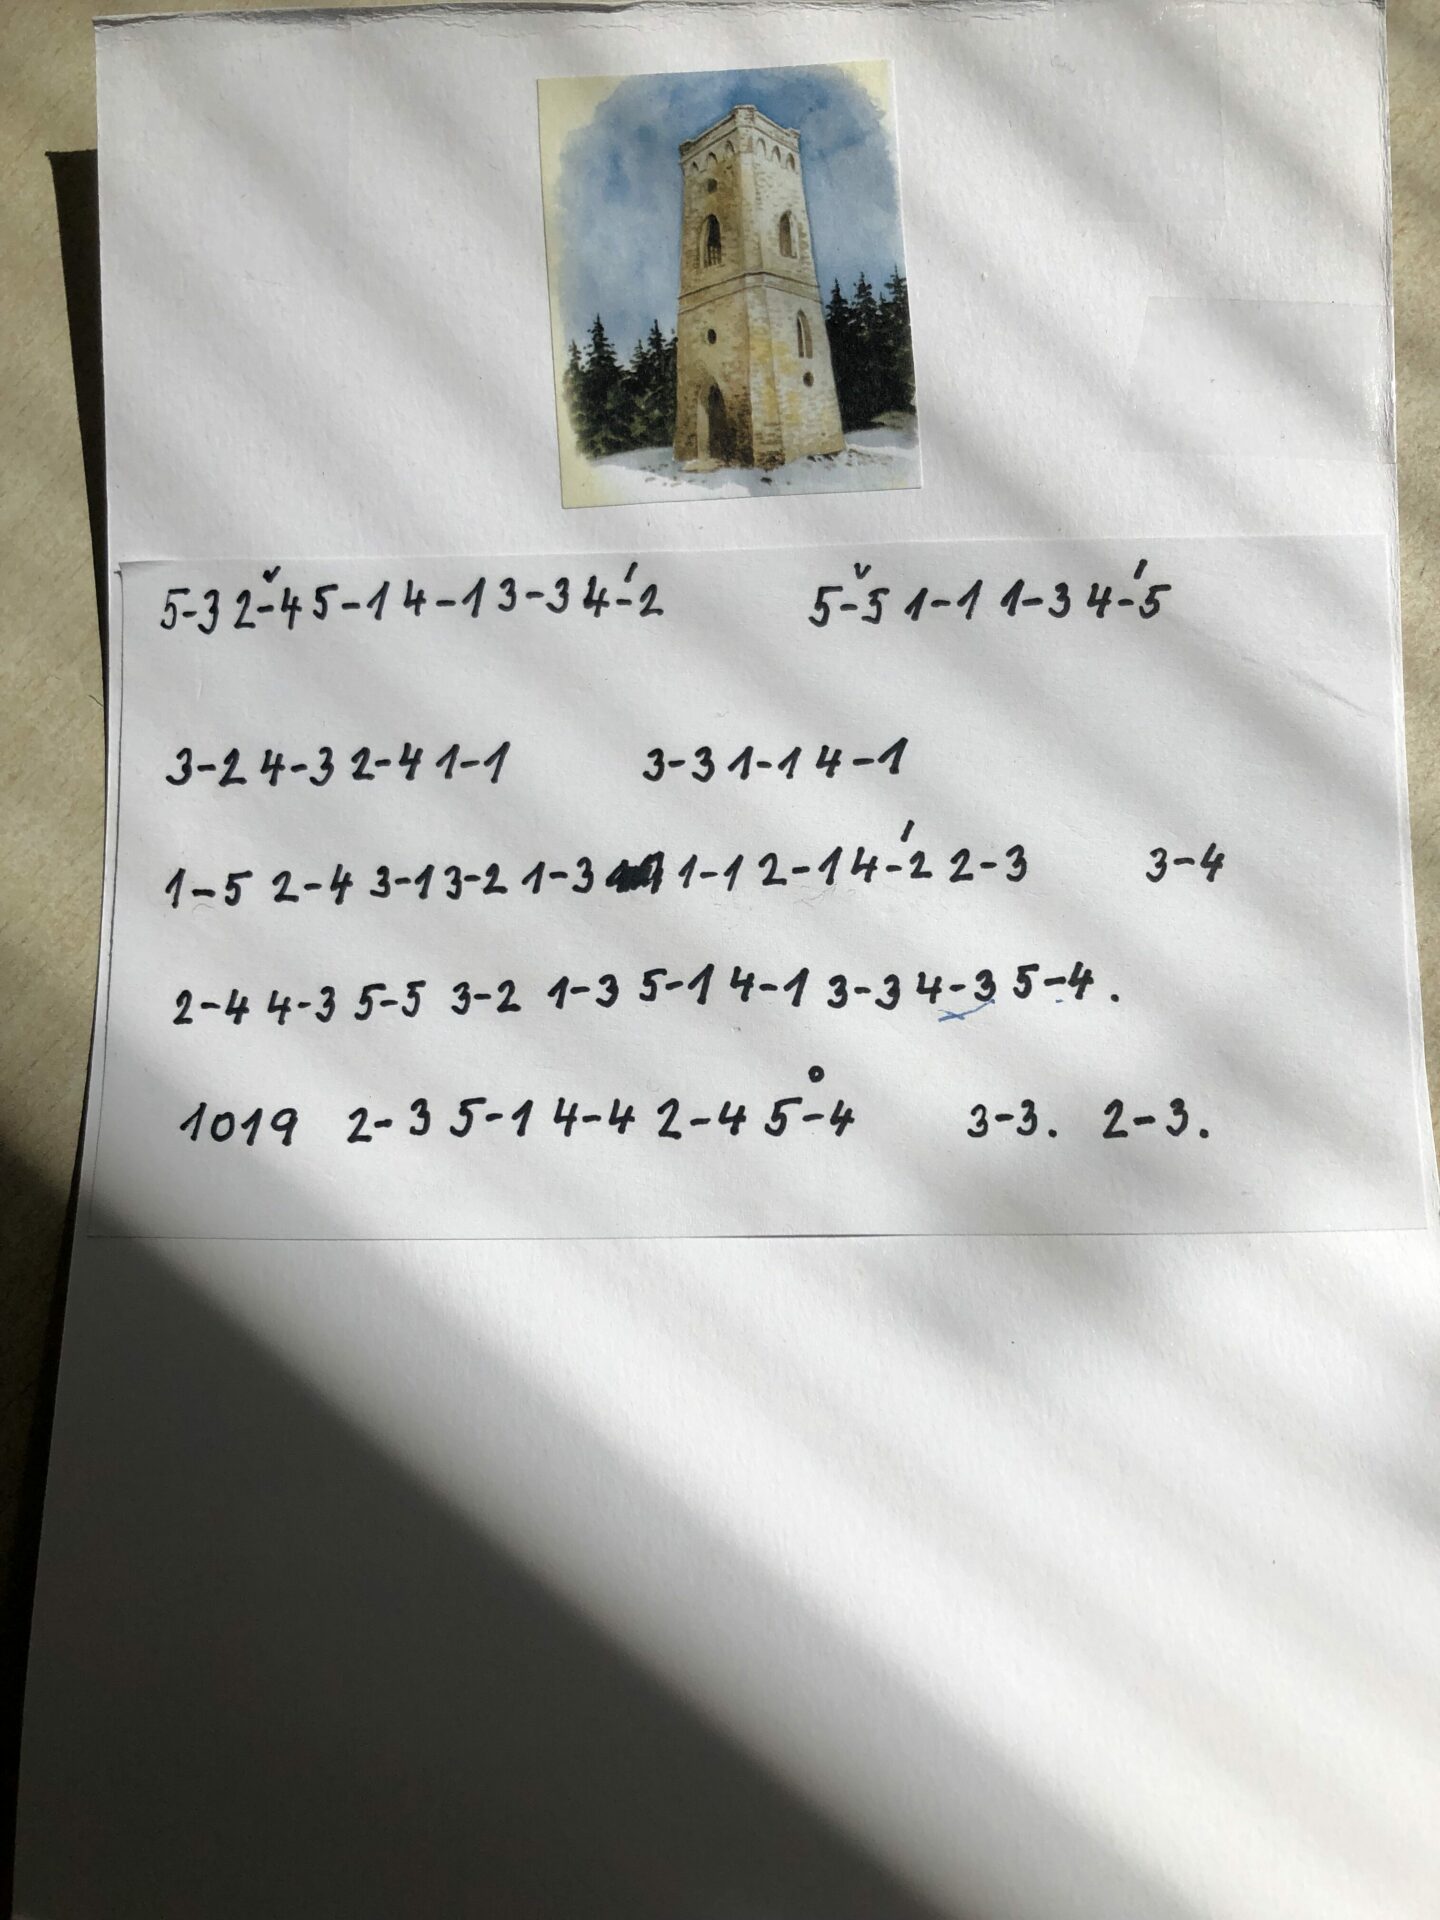 5-3 2-̌4 5-1 4-1 3-3 4-́2 5-̌5 1-1 1-3 4-́5
3-2 4-3 2-4 1-1 3-3 1-1 4-1
1-5 2-4 3-1 3-2 1-3 1-1 2-1 4-́2 2-3 3-4
2-4 4-3 5-5 3-2 1-3 5-1 4-1 3-3 4-3 5-4.
1019 2-3 5-1 4-4 2-4 5-̊4 3-3. 2-3.